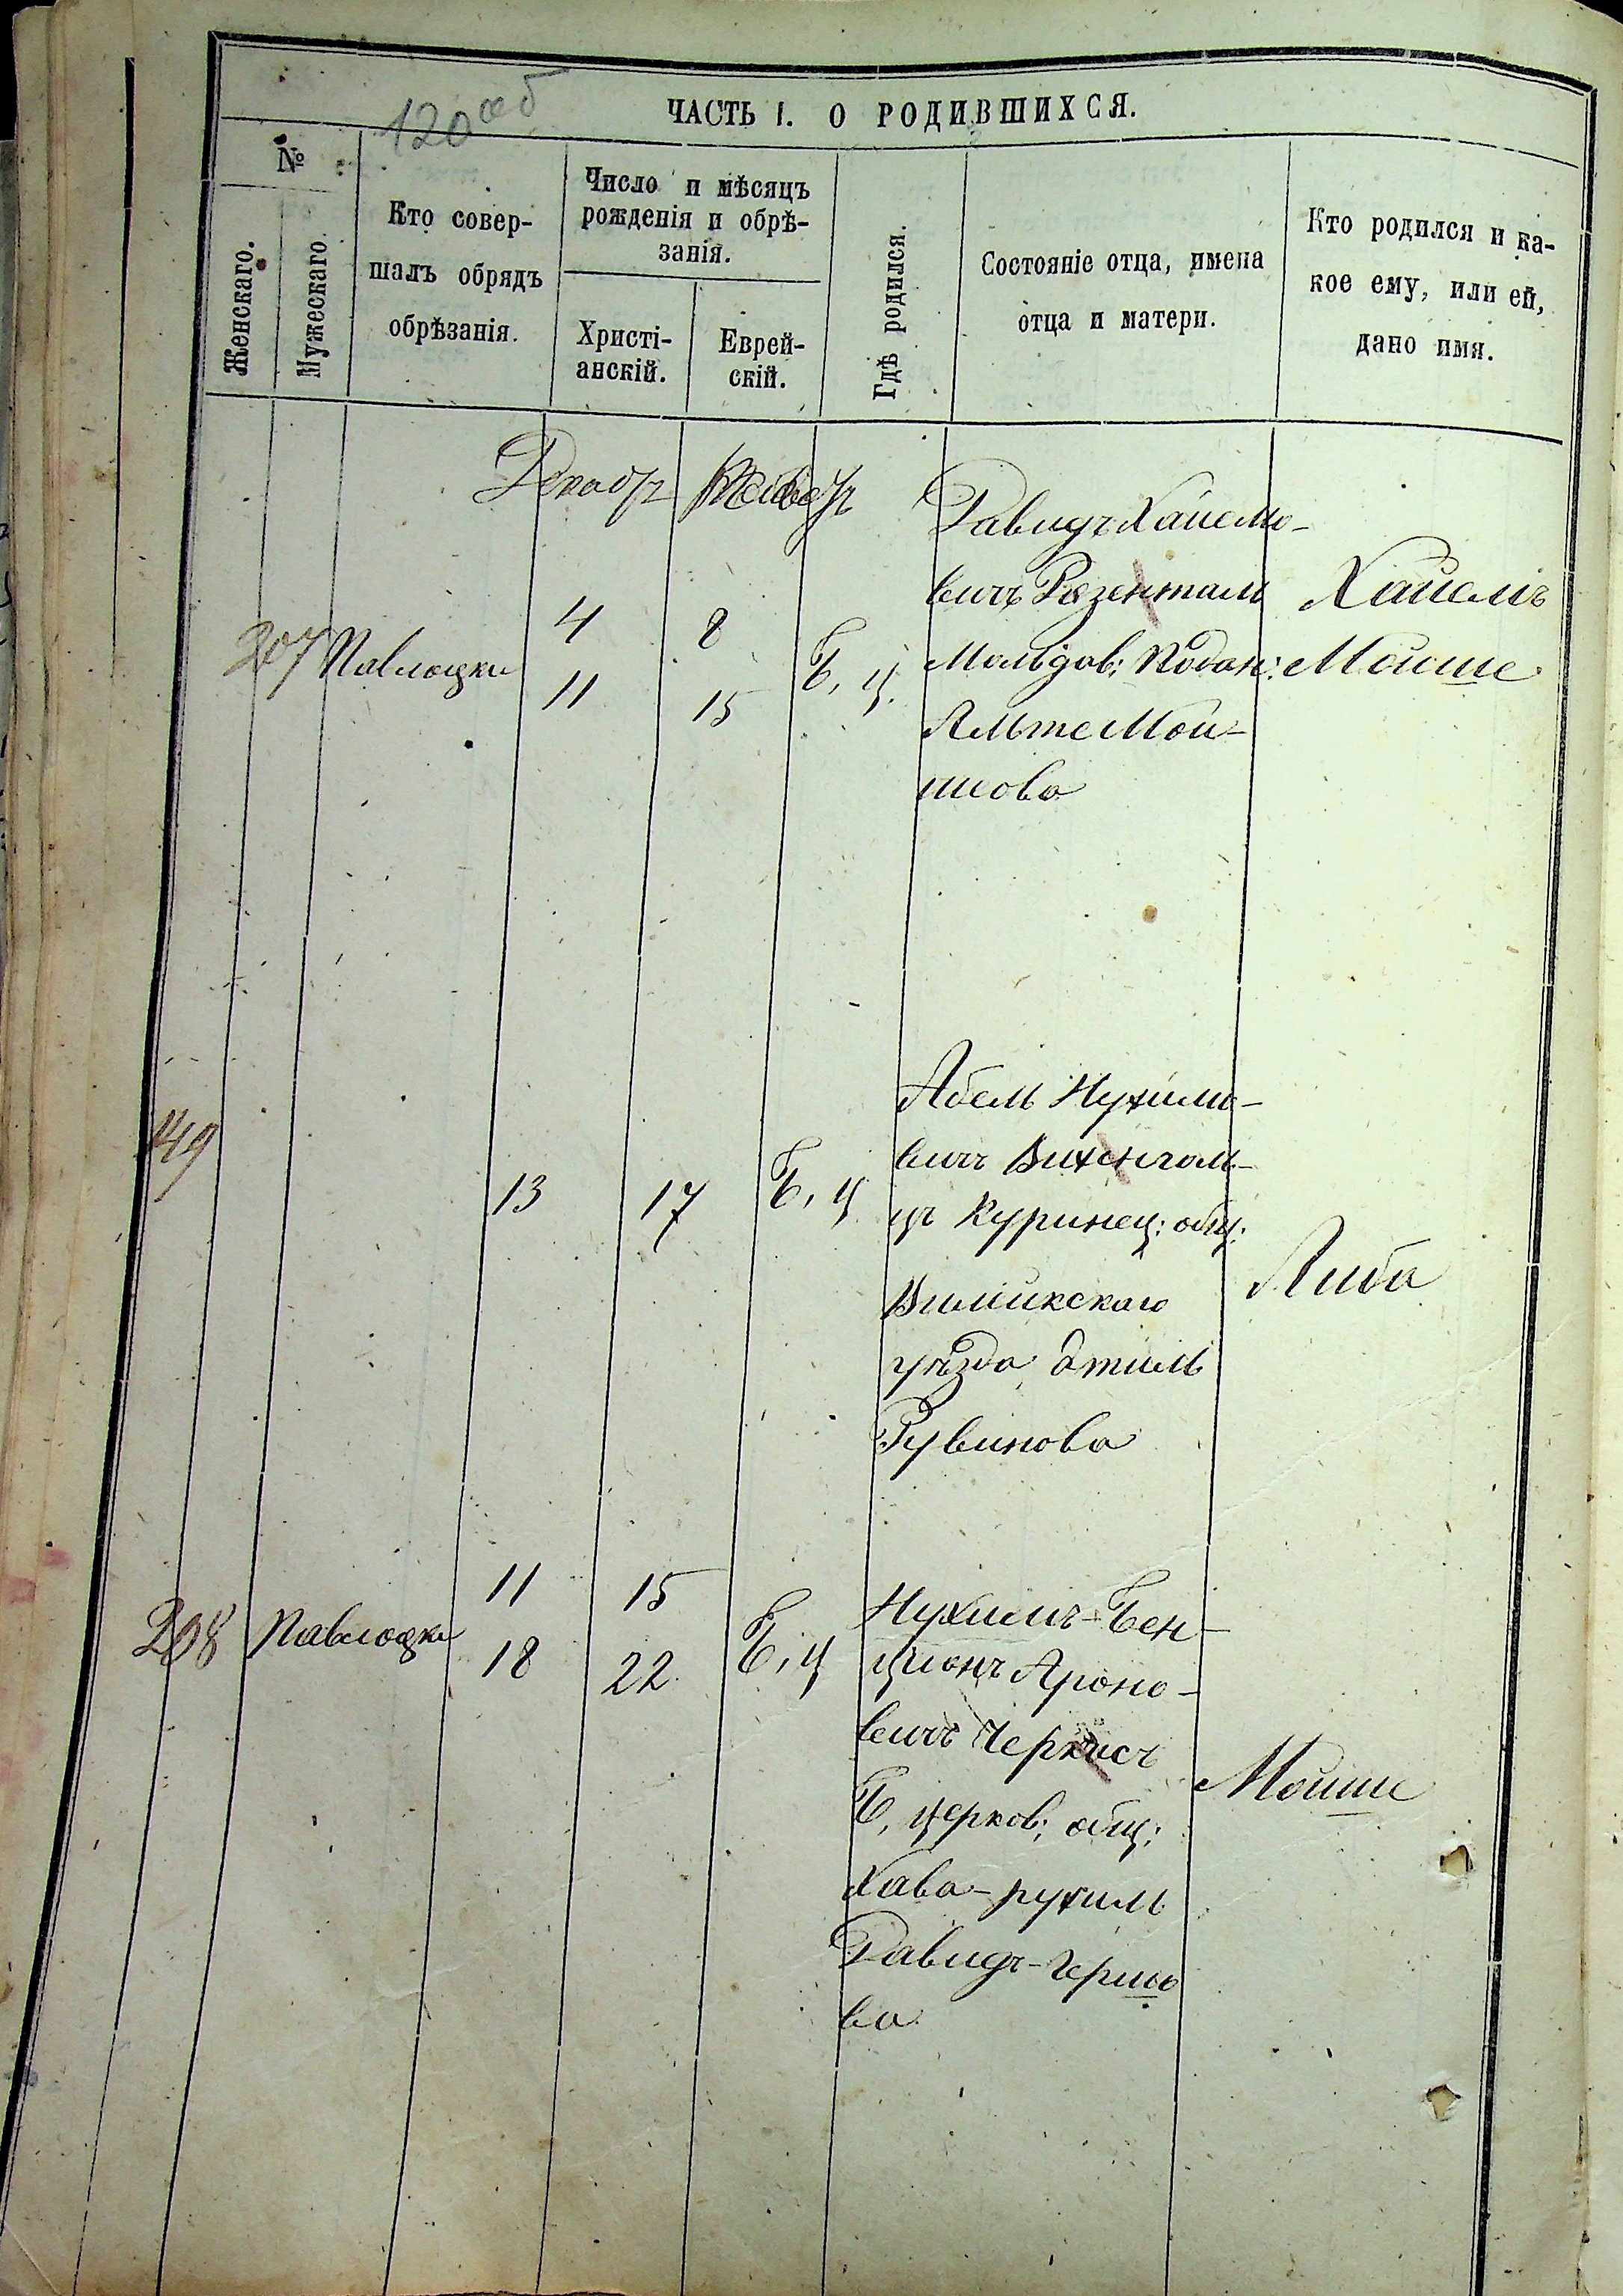 120 об
ЧАСТЬ I. О РОДИВШИХСЯ.
№
Женскаго.
Мужескаго.
Кто совер-
шалъ обрядъ
обрѣзанія.
Число и мѣсяцъ
рожденія и обрѣ-
занія.
Христі-
анскій.
Еврей-
скій.
Гдѣ родился.
Состояніе отца, имена
отца и матери.
Кто родился и ка-
кое ему, или ей,
дано имя.
207
Павлоцки
4
11
8
15
Б, Ц.
Давидъ Хаимо-
вичъ Розенталь
Молдав; Подан:
Альте Мои-
шова
Хаимъ
Моише
149
13
17
Б, Ц
Абель Нухимо-
вичъ
цъ Куринец: общ:
Вилийкскаго
уѣзда Этиль
Рувинова
Либа
208
Павлоцки
11
18
15
22.
Б, Ц
Нухимъ-Бен-
ціонъ Ароно-
вичъ Черкисъ
Б, Церков; общ;
Хава-рухиль
Давидъ-Гершо
ва
Моише